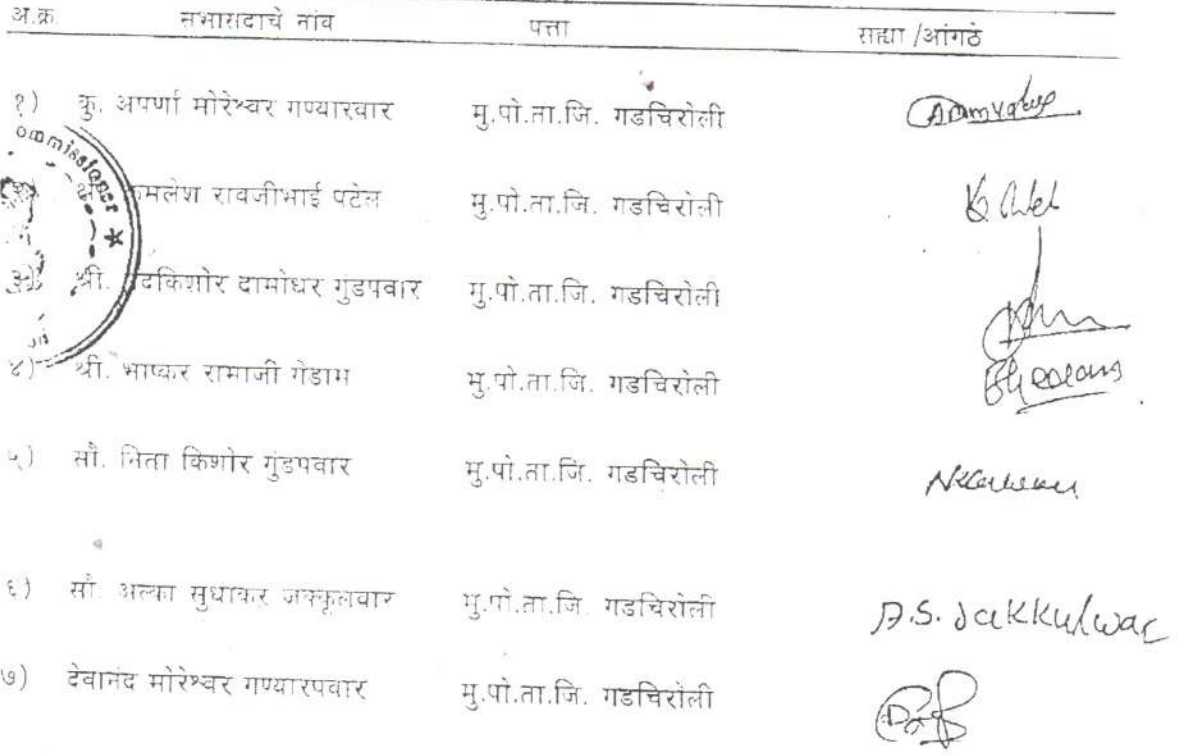 अ.क्र. सभासदाचे नांव पत्ता सह्या /आंगठे
१) कु. अपर्णा मोरेश्वर गण्यारवार मु.पो.ता.जि. गडचिरोली
ommissioner
कमलेश रावजीभाई पटेल मु.पो.ता.जि. गडचिरोली
३) श्री. दकिशोर दामोधर गुंडपवार मु.पो.ता.जि. गडचिरोली
४) श्री. भाष्कर रामाजी गेडाम मु.पो.ता.जि. गडचिरोली
५) सौ. निता किशोर गुंडपवार मु.पो.ता.जि. गडचिरोली
६) सौ. अल्का सुधाकर जक्कूलवार मु.पो.ता.जि. गडचिरोली A.S. Jakkulwar
७) देवानंद मोरेश्वर गण्यारपवार मु.पो.ता.जि. गडचिरोली